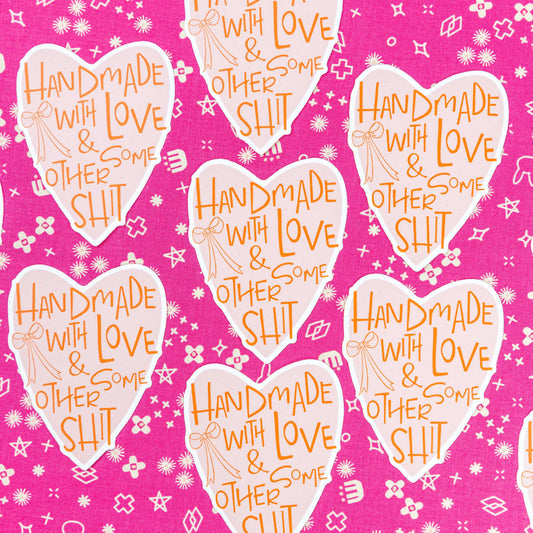 WITH LOVE
& SOME
OTHER
SHIT
HANDMADE
WITH LOVE
& SOME
OTHER
SHIT
HANDMADE
WITH LOVE
& SOME
OTHER
SHIT
HANDMADE
WITH LOVE
& SOME
OTHER
SHIT
HANDMADE
WITH LOVE
& SOME
OTHER
SHIT
HANDMADE
WITH LOVE
& SOME
OTHER
SHIT
HANDMADE
WITH LOVE
& SOME
OTHER
SHIT